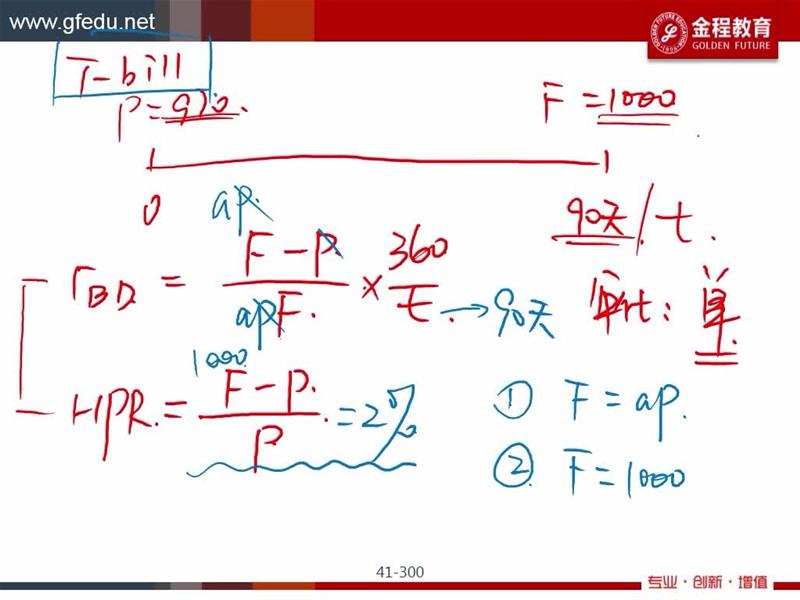 www.gfedu.net
金程教育
GOLDEN FUTURE
T-bill
P=970.
F=1000
0
90天/t.
ap.
r_BD = (F-P)/(apF.) × 360/t. → 90天
单
1000
HPR. = (F-P.)/P = 2%
① F = ap.
② F = 1000
41-300
专业·创新·增值